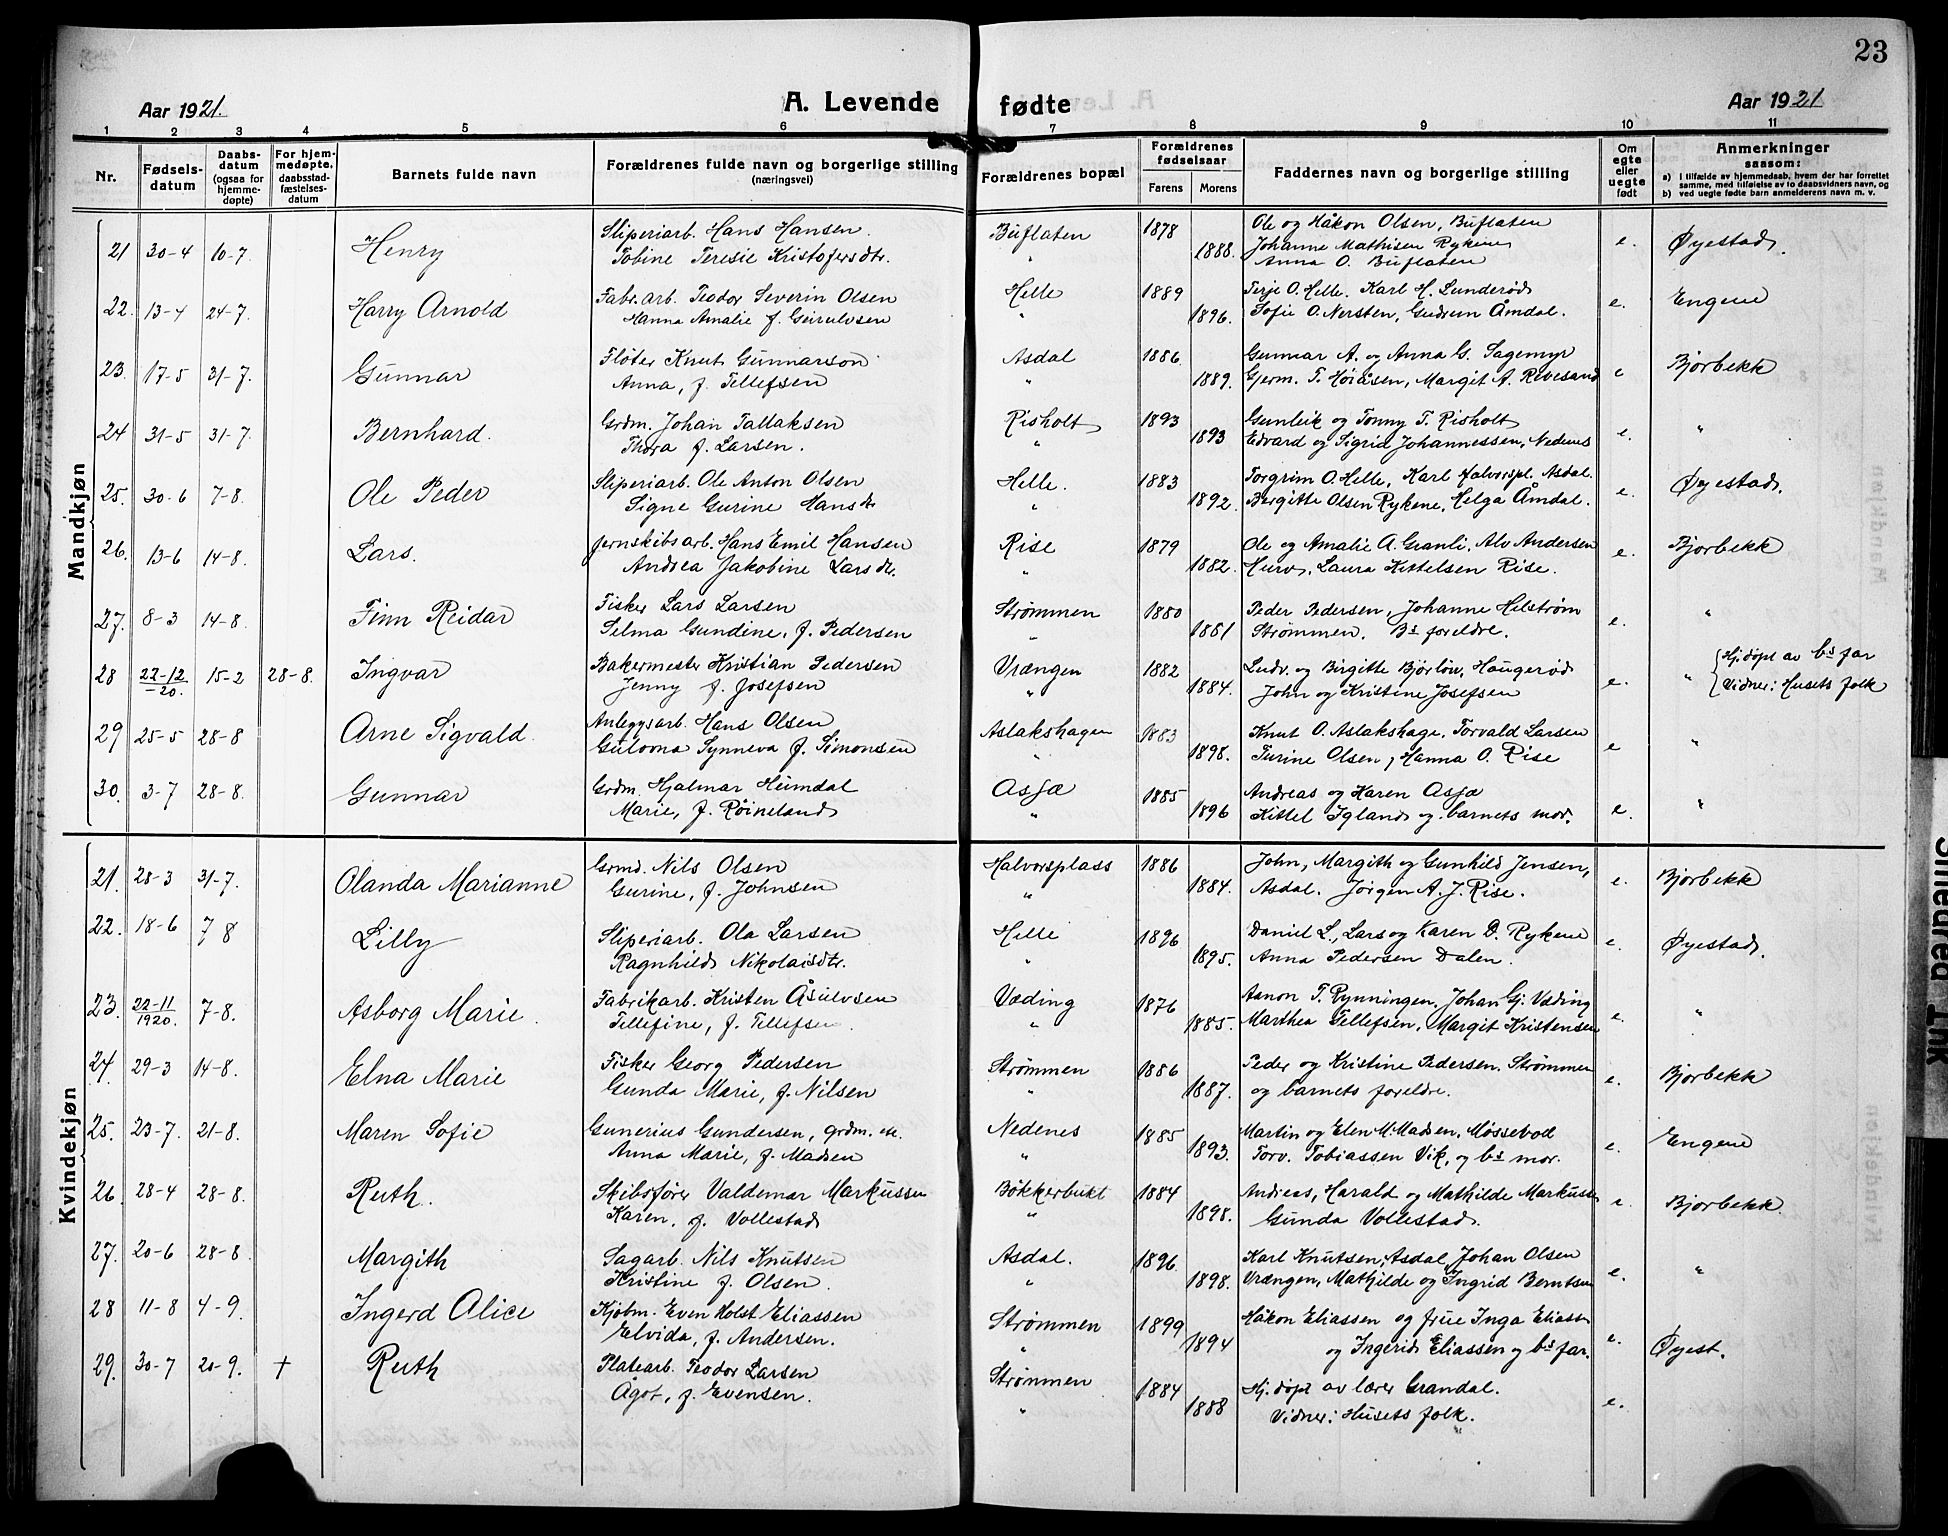 23
Aar 1921. A. Levende fødte Aar 1921
1 2 3 4 5 6 7 8 9 10 11
Nr. Fødselsdatum Daabsdatum (ogsaa for hjemmedøpte) For hjemmedøpte, daabsstadfæstelsesdatum Barnets fulde navn Forældrenes fulde navn og borgerlige stilling (næringsvei) Forældrenes bopæl Forældrenes fødselsaar Farens Morens Faddernes navn og borgerlige stilling Om egte eller uegte født Anmerkninger saasom:
a) I tilfælde av hjemmedaab, hvem der har forrettet samme, med tilføielse av to daabsvidners navn, og
b) ved uegte fødte barn anmelderens navn m. v.
Mandkjøn
21 30-4 10-7. Henry Sliperiarb. Hans Hansen. Buflaten 1878 Ole og Håkon Olsen, Buflaten e. Øyestad.
Tobine Teresie Kristofersdtr. " 1888. Johanne Mathisen Rykene
Anna O. Buflaten
22. 13-4 24-7. Harry Arnold Fabr. arb. Teodor Severin Olsen Helle 1889 Terje O. Helle. Karl H. Lunderød e. Engene
Hanna Amalie f. Geirulvsen " 1896. Sofie O. Nersten, Gudrun Åmdal.
23. 17-5 31-7. Gunnar Fløter Knut Gunnarson Asdal 1886 Gunnar A. og Anna G. Sagemyr e Bjorbekk
Anna, f. Tellefsen " 1889. Gjerm. T. Høiåsen, Margit A. Revesand
24 31-5 31-7. Bernhard. Grdm. Johan Tallaksen Risholt 1893 Gunleik og Tonny T. Risholt e. "
Thora f. Larsen. " 1893 Edvard og Sigrid Johannessen, Nedenes
25. 30-6 7-8. Ole Peder Sliperiarb. Ole Anton Olsen Helle. 1883 Torgrim O. Helle, Karl Halvorspl. Asdal. e. Øyestad.
Signe Gurine Hansdtr " 1892. Bergitte Olsen Rykene, Helga Åmdal.
26. 13-6 14-8. Lars. Jernskibsarb. Hans Emil Hansen Rise 1879 Ole og Amalie A. Granli, Alv Andersen e. Bjorbekk
Andrea Jakobine Larsdtr. " 1882. Hurv, Laura Kittelsen Rise.
27. 8-3 14-8. Finn Reidar Fisker Lars Larsen Strømmen 1880 Peder Pedersen, Johanne Helstrøm e. "
Selma Gundine, f. Pedersen " 1881 Strømmen. Bs foreldre.
28 22-12 -20. 15-2 28-8. Ingvar Bakermester Kristian Pedersen Vrængen 1882 Ludv. og Birgitte Bjorløw, Haugerød e. " Hj.døpt av bs far
Jenny f. Josefsen " 1884. John og Kristine Josefsen Vidner: Husets folk
29 25-5 28-8 Arne Sigvald. Anleggsarb. Hans Olsen Aslakshagen 1883 Knut O. Aslakshage, Torvald Larsen e "
Gulowna Synneva f. Simonsen " 1898. Turine Olsen, Hanna O. Rise
30. 3-7 28-8. Gunnar Grdm. Hjalmar Heimdal Asjæ 1885 Andreas og Karen Asjæ e. "
Marie, f. Røineland " 1896 Kittel Igland og barnets mor.
Kvindekjøn
21. 28-3 31-7. Olanda Marianne Grmd. Nils Olsen Halvorsplass 1886 John, Margith og Gunhild Jensen, e. Bjorbekk
Gurine, f. Johnsen " 1884. Asdal. Jørgen A. J. Rise.
22. 18-6 7-8 Lilly Sliperiarb. Ola Larsen Helle 1896 Daniel L., Lars og Karen D. Rykene e. Øyestad.
Ragnhild Nikolaisdtr. " 1895. Anna Pedersen Dalen.
23. 22-11 1920. 7-8. Asborg Marie. Fabrikarb. Kristen Åsulvsen Væding 1876 Aanon T. Rynningen, Johan Gj. Væding e. "
Tellefine, f. Tellefsen. " 1885. Marthea Tellefsen, Margit Kristensen
24. 29-3 14-8. Elna Marie Fisker Georg Pedersen Strømmen 1886 Peder og Kristine Pedersen, Strømmen e. Bjorbekk
Gunda Marie, f. Nilsen " 1887. og barnets foreldre.
25. 23-7. 21-8. Maren Sofie Gunerius Gundersen, grdm. etc. Nedenes 1885 Martin og Elen M. Madsen, Møssebod e. Engene
Anna Marie, f. Madsen " 1893. Torv. Tobiassen Vik, og bs mor.
26 28-4 28-8. Ruth. Skibsfører Valdemar Markussen Bøkkerbukt 1884 Andreas, Harald og Mathilde Markuss e. Bjorbekk.
Karen, f. Vollestad " 1898. Gunda Vollestad.
27. 20-6 28-8 Margith Sagarb. Nils Knutsen Asdal. 1896 Karl Knutsen, Asdal, Johan Olsen e. "
Kristine f. Olsen. " 1898. Vrængen, Mathilde og Ingrid Berntsen
28 11-8 4-9. Ingerd Alice Kjøbm. Even Holst Eliassen Strømmen 1899 Håkon Eliassen og frue Inga Eliass e. Øyest.
Elvida, f. Andersen. " 1894 og Ingerid Eliassen og bs far.
29. 30-7 20-9. + Ruth Platearb. Teodor Larsen Strømmen 1884 Hj.døpt av lærer Grandal. e.
Ågot, f. Evensen. " 1888 Vidner: Husets folk.